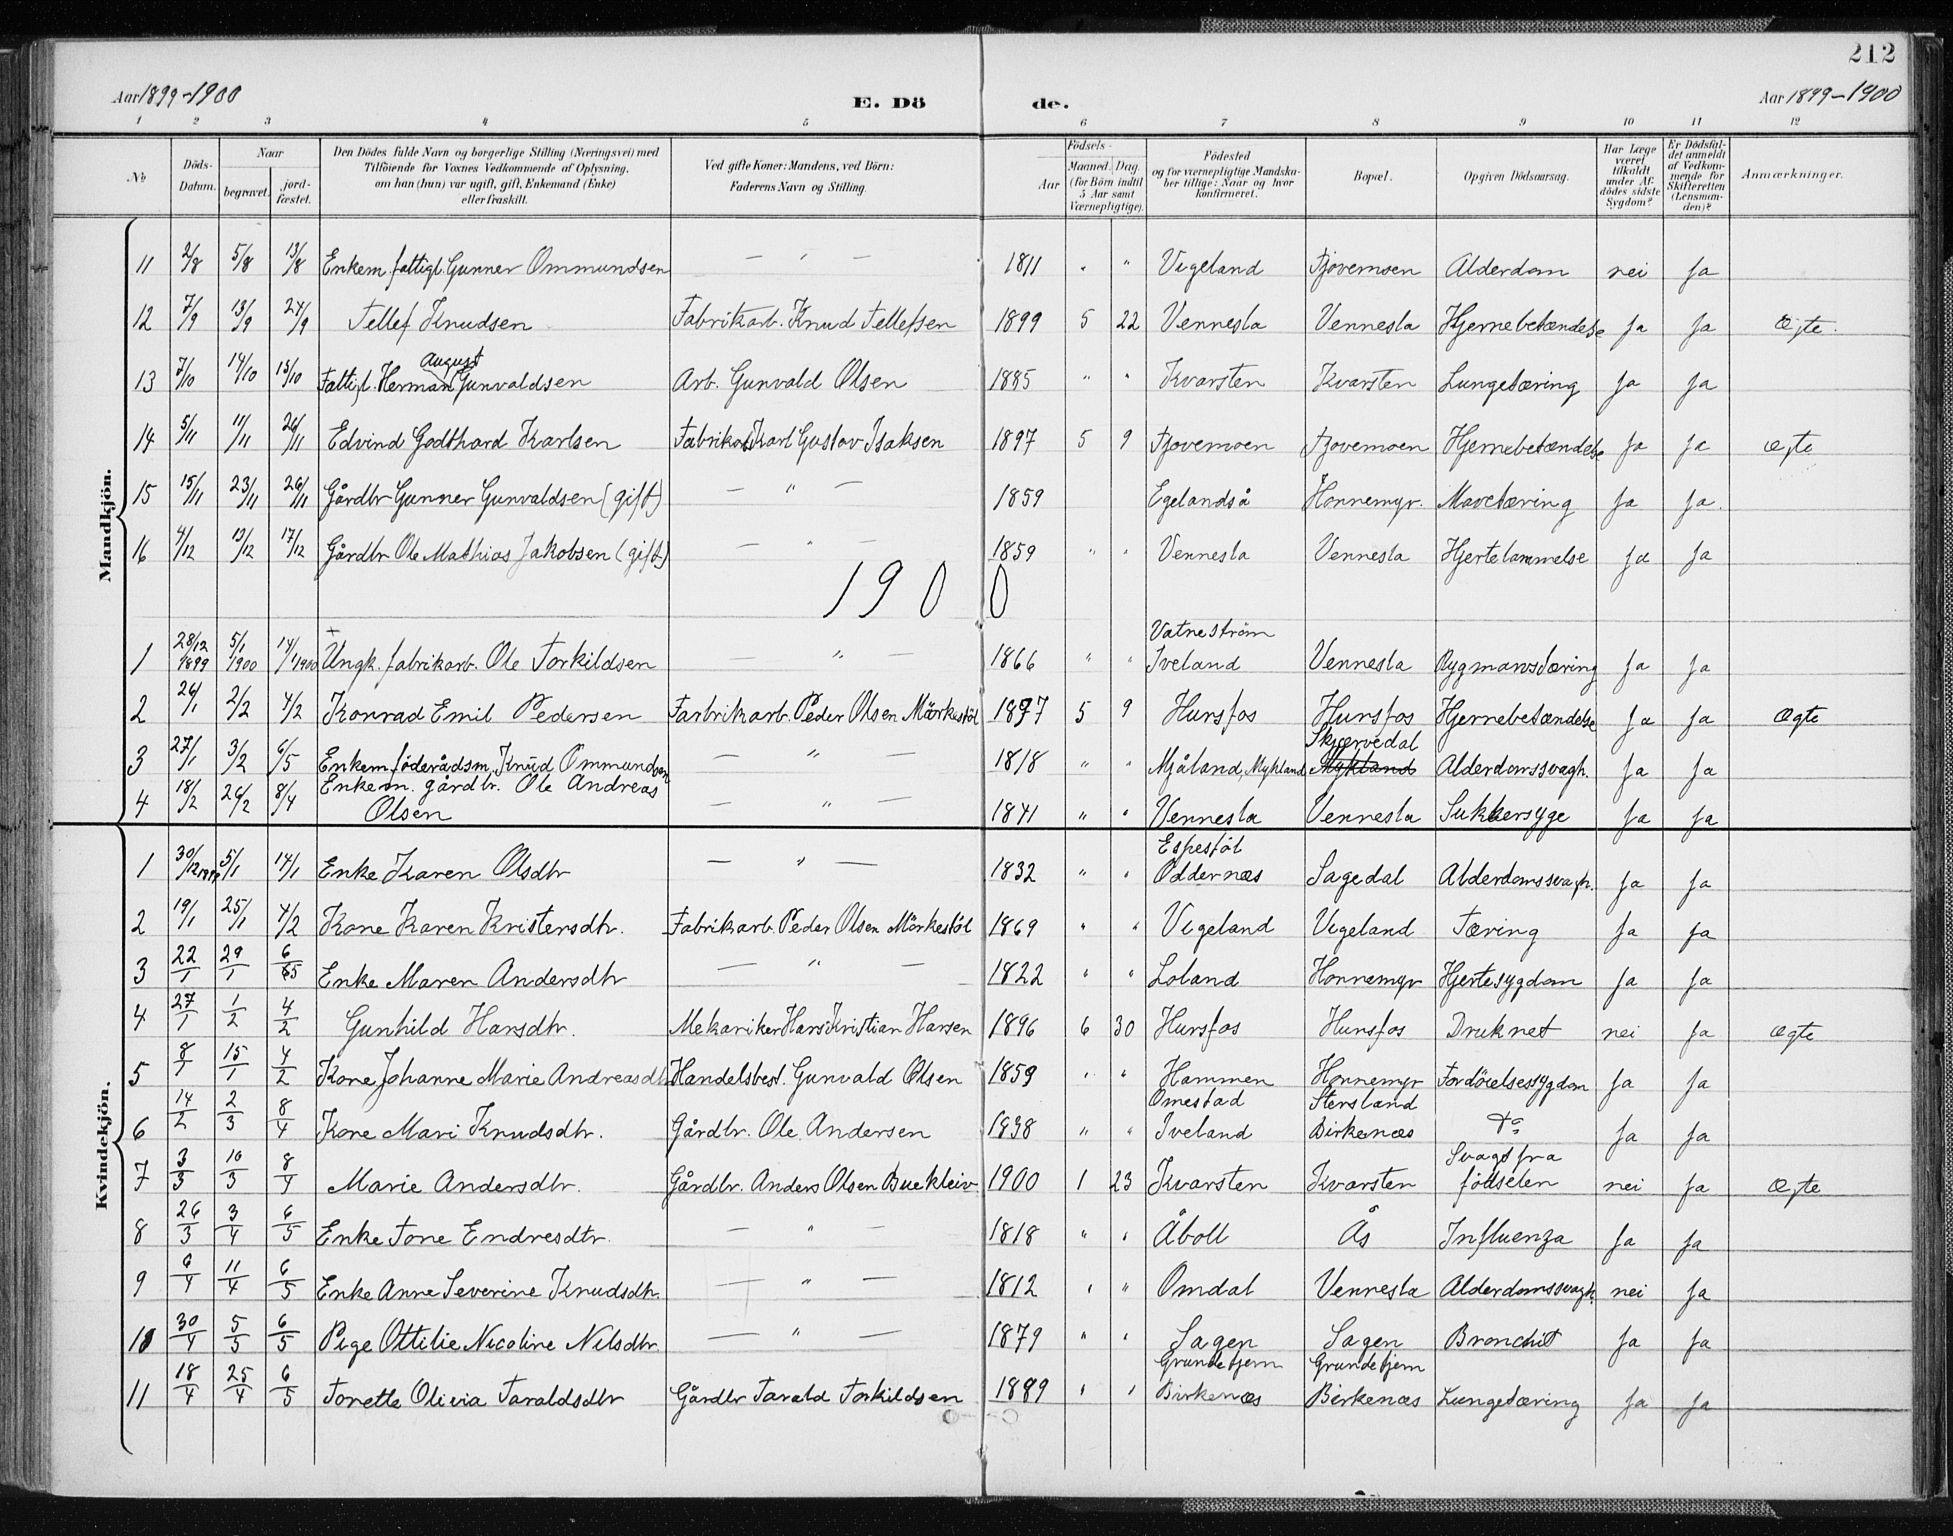 212
Aar 1899-1900 E. Dö de. Aar 1899-1900
1 2 3 4 5 6 7 8 9 10 11 12
№ Döds-Datum. Naar begravet. jord-fæstet. Den Dödes fulde Navn og borgerlige Stilling (Næringsvei) med Tilföiende for Voxnes Vedkommende af Oplysning, om han (hun) var ugift, gift, Enkemand (Enke) eller fraskilt. Ved gifte Koner: Mandens, ved Börn: Faderens Navn og Stilling. Födsels- Aar Maaned. Dag. (for Börn indtil 5 Aar samt Værnepligtige). Födested og for værnepligtige Mandskaber tillige: Naar og hvor konfirmeret. Bopæl. Opgiven Dödsaarsag. Har Læge været tilkaldt under Afdödes sidste Sygdom? Er Dödsfaldet anmeldt af Vedkommende for Skifteretten (Lensmanden)? Anmærkninger.
Mandkjön.
11 2/8 5/8 13/8 Enkem. fattigl. Gunner Ommundsen — " — 1811 " " Vigeland Fjovemoen Alderdom nei Ja
12 7/9 13/9 24/9 Tellef Knudsen Fabrikarb. Knud Tellefsen 1899 5 22 Vennesla Vennesla Hjernebetændelse Ja Ja Ægte.
August
13 7/10 14/10 15/10 Fattigl. Herman Gunvaldsen Arb. Gunvald Olsen 1885 " " Kvarsten Kvarsten Lungetæring Ja Ja
14 5/11 11/11 26/11 Edvind Godthard Karlsen Fabrikarb. Karl Gustav Isaksen 1897 5 9 Fjovemoen Fjovemoen Hjernebetændelse Ja Ja ægte
15 15/11 23/11 26/11 Gårdbr Gunner Gunvaldsen (gift) — " — 1859 Egelandså Honnemyr. Mavetæring Ja Ja.
16 4/12 13/12 17/12 Gårdbr Ole Mathias Jakobsen (gift) — " — 1859 " " Vennesla Vennesla Hjertelammelse Ja Ja
1900
Vatneström
1 28/12 1899 5/1 1900 14/1 1900 Ungk. fabrikarb. Ole Torkildsen — " — 1866 " " Iveland Vennesla Rygmarvstæring Ja Ja
2 26/1 2/2 4/2 Konrad Emil Pedersen Farbrikarb. Peder Olsen Mörkestöl 1897 5 9 Hunsfos Hunsfos Hjernebetændelse Ja Ja Ægte
Skjærvedal
3 27/1 3/2 6/5 Enkem föderådsm. Knud Ommundsen — " — 1818 " " Mjåland, Mykland Mykland Alderdomssvagh. Ja Ja
Enkem. gårdbr. Ole Andreas
4 18/2 26/2 8/4 Olsen — " — 1841 " " Vennesla Vennesla Sukkersyge Ja Ja
Kvindekjön.
Espestöl
1 30/12 1899 5/1 14/1 Enke Karen Olsdtr — " — 1832 " " Oddernæs Sagedal Alderdomssvagh. Ja Ja
2 19/1 25/1 4/2 Kone Karen Kristensdtr. Fabrikarb. Peder Olsen Mörkestöl 1869 " " Vigeland Vigeland Tæring Ja Ja
3 22/1 29/1 6/5 Enke Maren Andersdtr — " — 1822 " " Loland Honnemyr Hjertesygdom Ja Ja
4 27/1 1/2 4/2 Gunhild Hansdtr. Mekaniker Hans Kristian Hansen 1896 6 30 Hunsfos Hunsfos Druknet nei Ja ægte
5 8/1 15/1 4/2 Kone Johanne Marie Andreasdtr. Handelsbest. Gunvald Olsen 1859 " " Hammen Honnemyr Fordöielsessygdom Ja Ja
Omestad Stersland
6 14/2 2/3 8/4 Kone Mari Knudsdtr. Gårdbr. Ole Andersen 1838 " " Iveland Birkenæs Do Ja Ja
Svagt fra
7 3/3 10/3 8/4 Marie Andersdtr. Gårdbr. Anders Olsen Buekleiv 1900 1 23 Kvarsten Kvarsten födselen nei Ja Ægte
8 26/3 3/4 6/5 Enke Tone Endresdtr. — " — 1818 " " Åboll Ås Influenza Ja Ja
9 6/4 11/4 6/5 Enke Anne Severine Knudsdtr. — " — 1812 " " Omdal Vennesla Alderdomssvagh. nei Ja
10 30/4 5/5 6/5 Pige Ottilie Nicoline Nilsdtr. — " — 1879 " " Sagen Sagen Bronchit Ja Ja
Grundetjern Grundetjern
11 18/4 25/4 6/5 Tonette Olivia Taraldsdtr Gårdbr Tarald Torkildsen 1889 " " Birkenæs Birkenæs Lungetæring Ja Ja